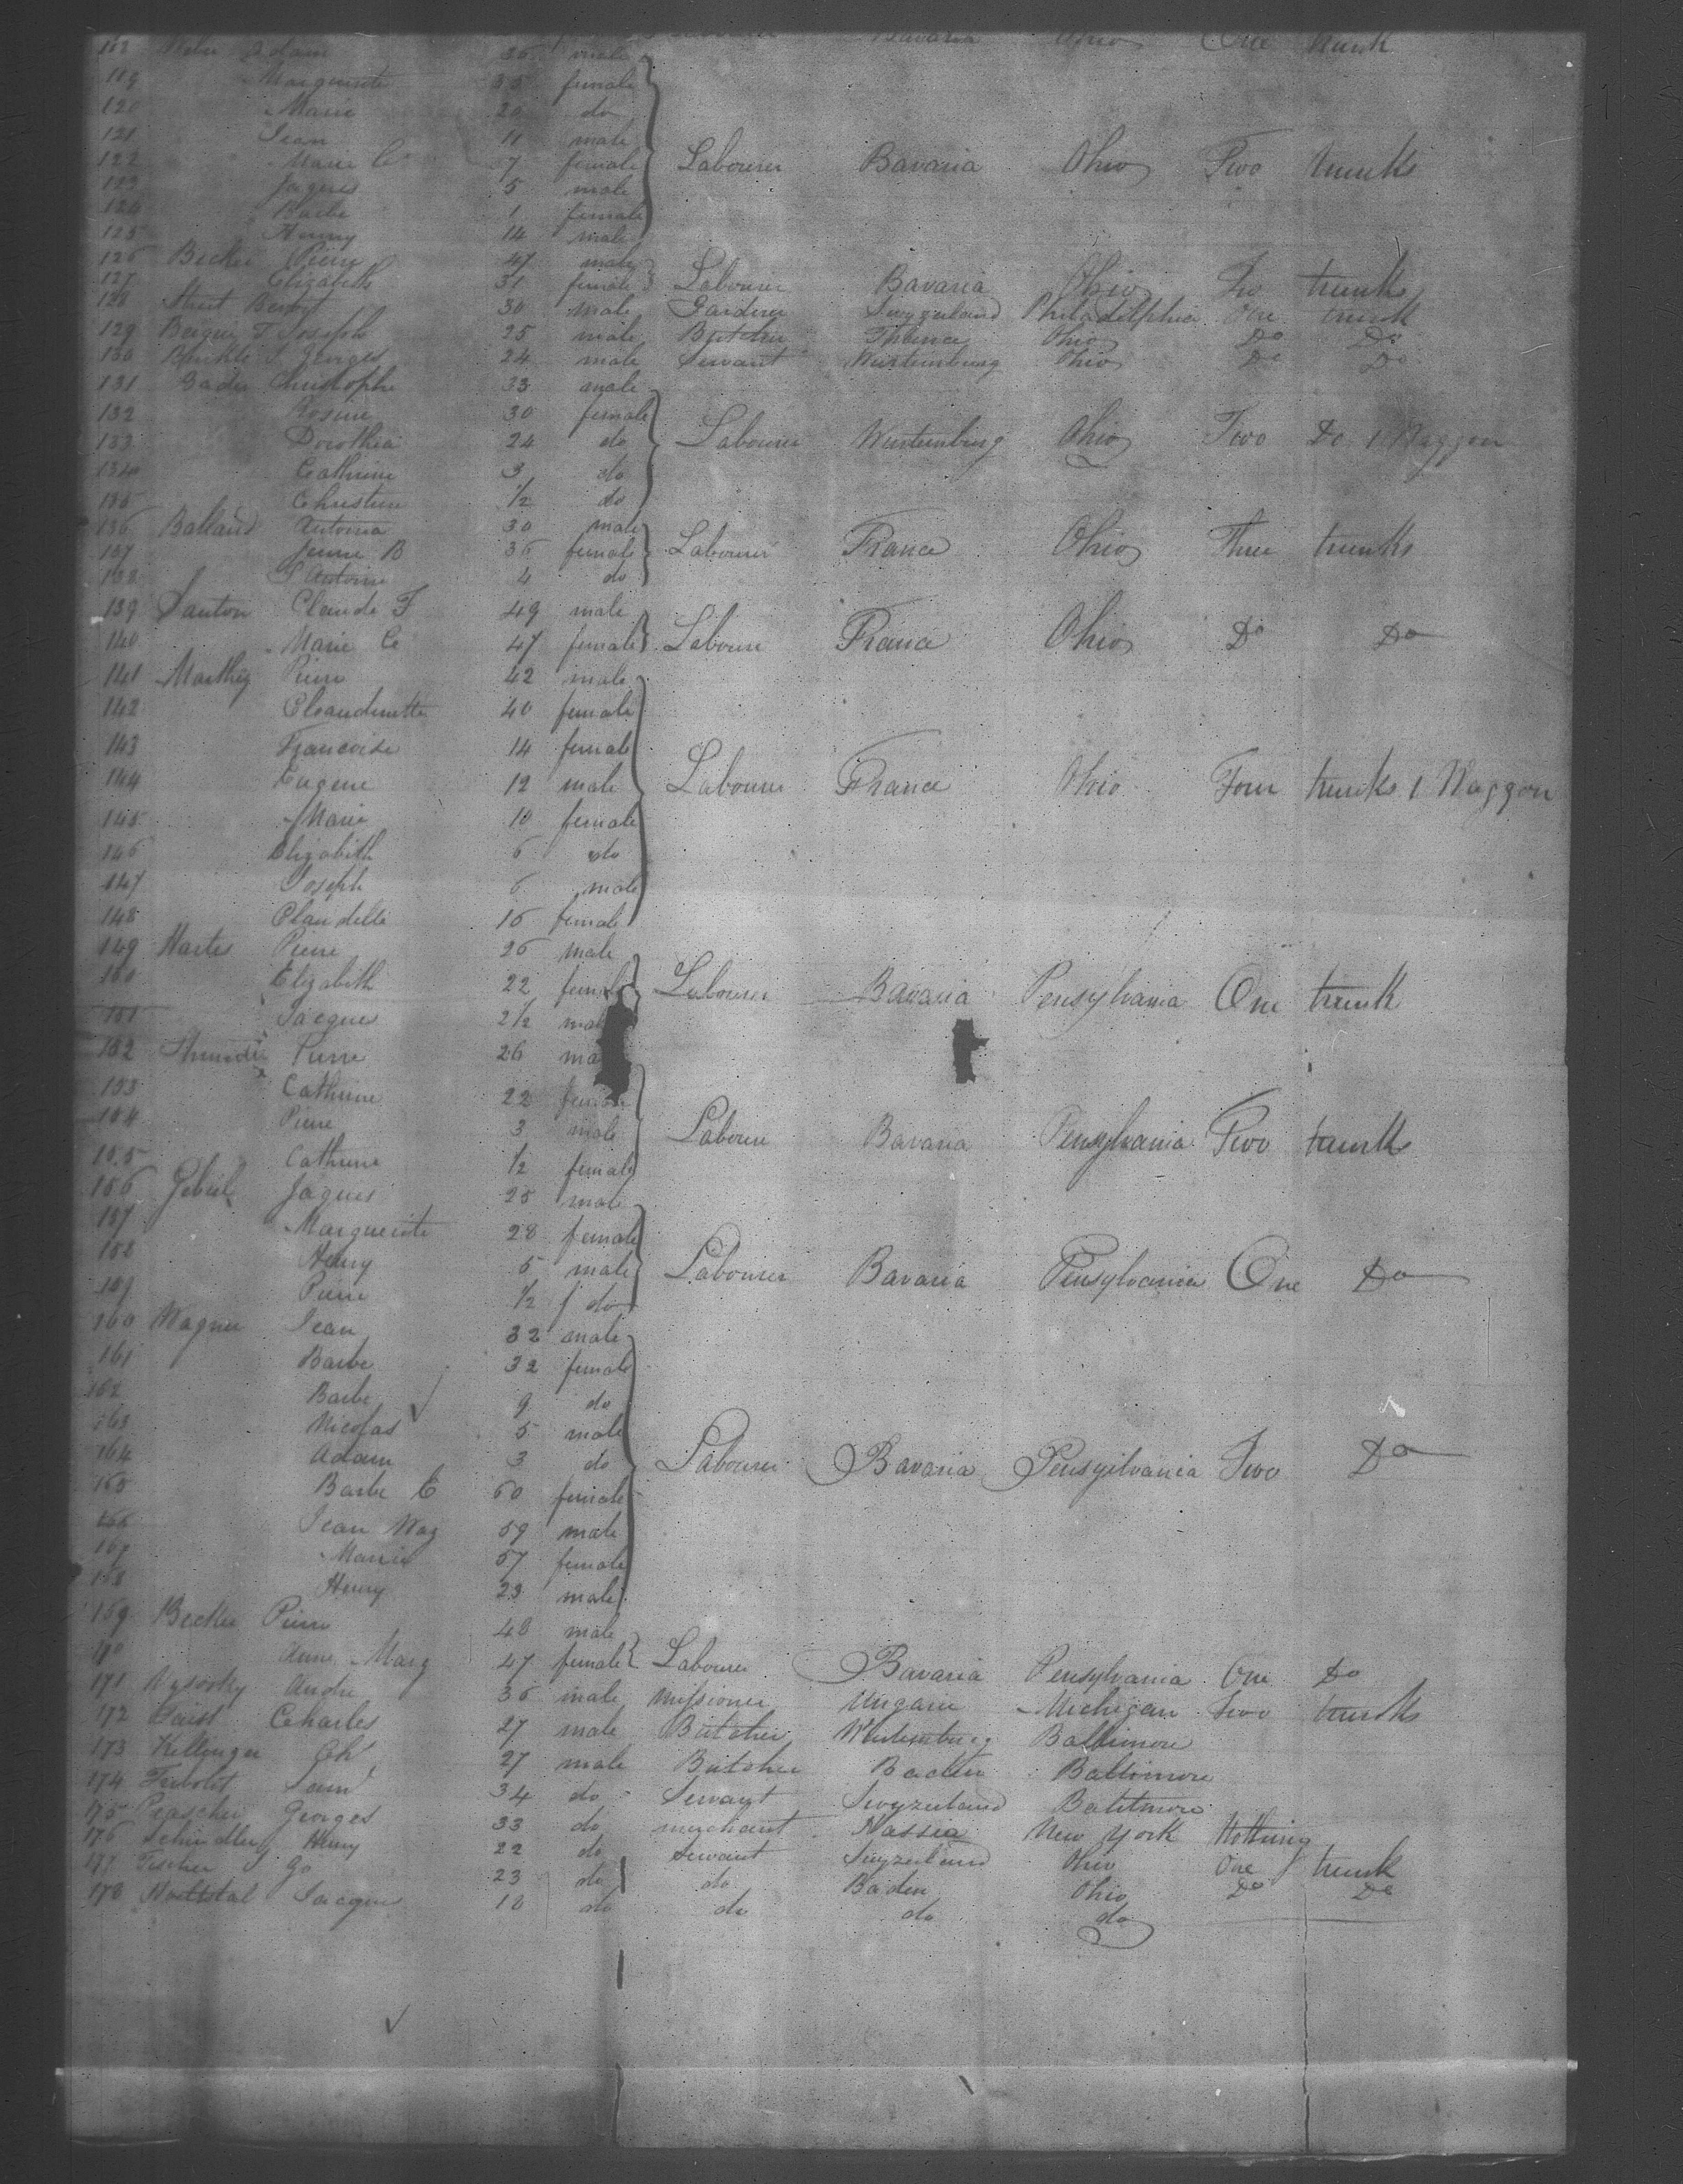 Adam 36 male Bavaria Ohio One trunk
119 Marguerite 35 female
120 Marie 20 do
121 Jean 11 male
122 Marie C 7 female Labourer Bavaria Ohio Two trunks
123 Jaques 5 male
124 Barbe 1 female
125 Henry 14 male
126 Becker Pierre 47 male
127 Elizabeth 31 female Labourer Bavaria Ohio Two trunks
128 30 male Gardener Swyzerland Philadelphia One trunk
129 Joseph 25 male Butcher France Ohio Do Do
130 Georges 24 male Servant Wurtemburg Ohio Do Do
131 Christophe 33 male
132 Rosine 30 female
133 Dorothea 24 do Labourer Wurtemburg Ohio Two Do 1 Waggon
134 Cathrine 3 do
135 Christine 1/2 do
136 Balland Antoine 30 male
137 Jeanne B 36 female Labourer France Ohio Three trunks
138 Antoine 4 do
139 Santon Claude F 49 male
140 Marie C 47 female Labourer France Ohio Do Do
141 Marthey Pierre 42 male
142 Cleaudinette 40 female
143 Francoise 14 female
144 Eugene 12 male Labourer France Ohio Four trunks 1 Waggon
145 Marie 10 female
146 Elizabeth 6 do
147 Joseph 6 male
148 16 female
149 Pierre 26 male
150 Elizabeth 22 female Labourer Bavaria Pensylvania One trunk
151 Jacques 2 1/2 mal
152 Pierre 26 ma
153 Cathrine 22 female
154 Pierre 3 male Labourer Bavaria Pensylvania Two trunks
155 Cathrine 1/2 female
156 Jaques 25 male
157 Marguerite 28 female
158 Henry 5 male Labourer Bavaria Pensylvania One Do
159 Pierre 1/2 do
160 Wagner Jean 32 male
161 Barbe 32 female
162 Barbe 9 do
163 Nicolas 5 male
164 Adam 3 do Labourer Bavaria Pensylvania Two Do
165 Barbe C 60 female
166 Jean Wag 59 male
167 Marie 57 female
168 Henry 23 male
159 Becker Pierre 48 male
170 Anne Marg 47 female Labourer Bavaria Pensylvania One Do
171 Wysosky Andre 36 male Missioner Ungarn Michigan Two trunks
172 Charles 27 male Butcher Wurtemburg Baltimore
173 Kellenger Ch 27 male Butcher Baden Baltimore
174 34 do Servant Swyzerland Baltimore
175 Georges 33 do merchant Nassea New York Nothing
176 Schindler Henry 22 do Servant Swyzerland Ohio One trunk
177 Fischer 23 do do Baden Ohio Do Do
178 Jacques 18 do do do do